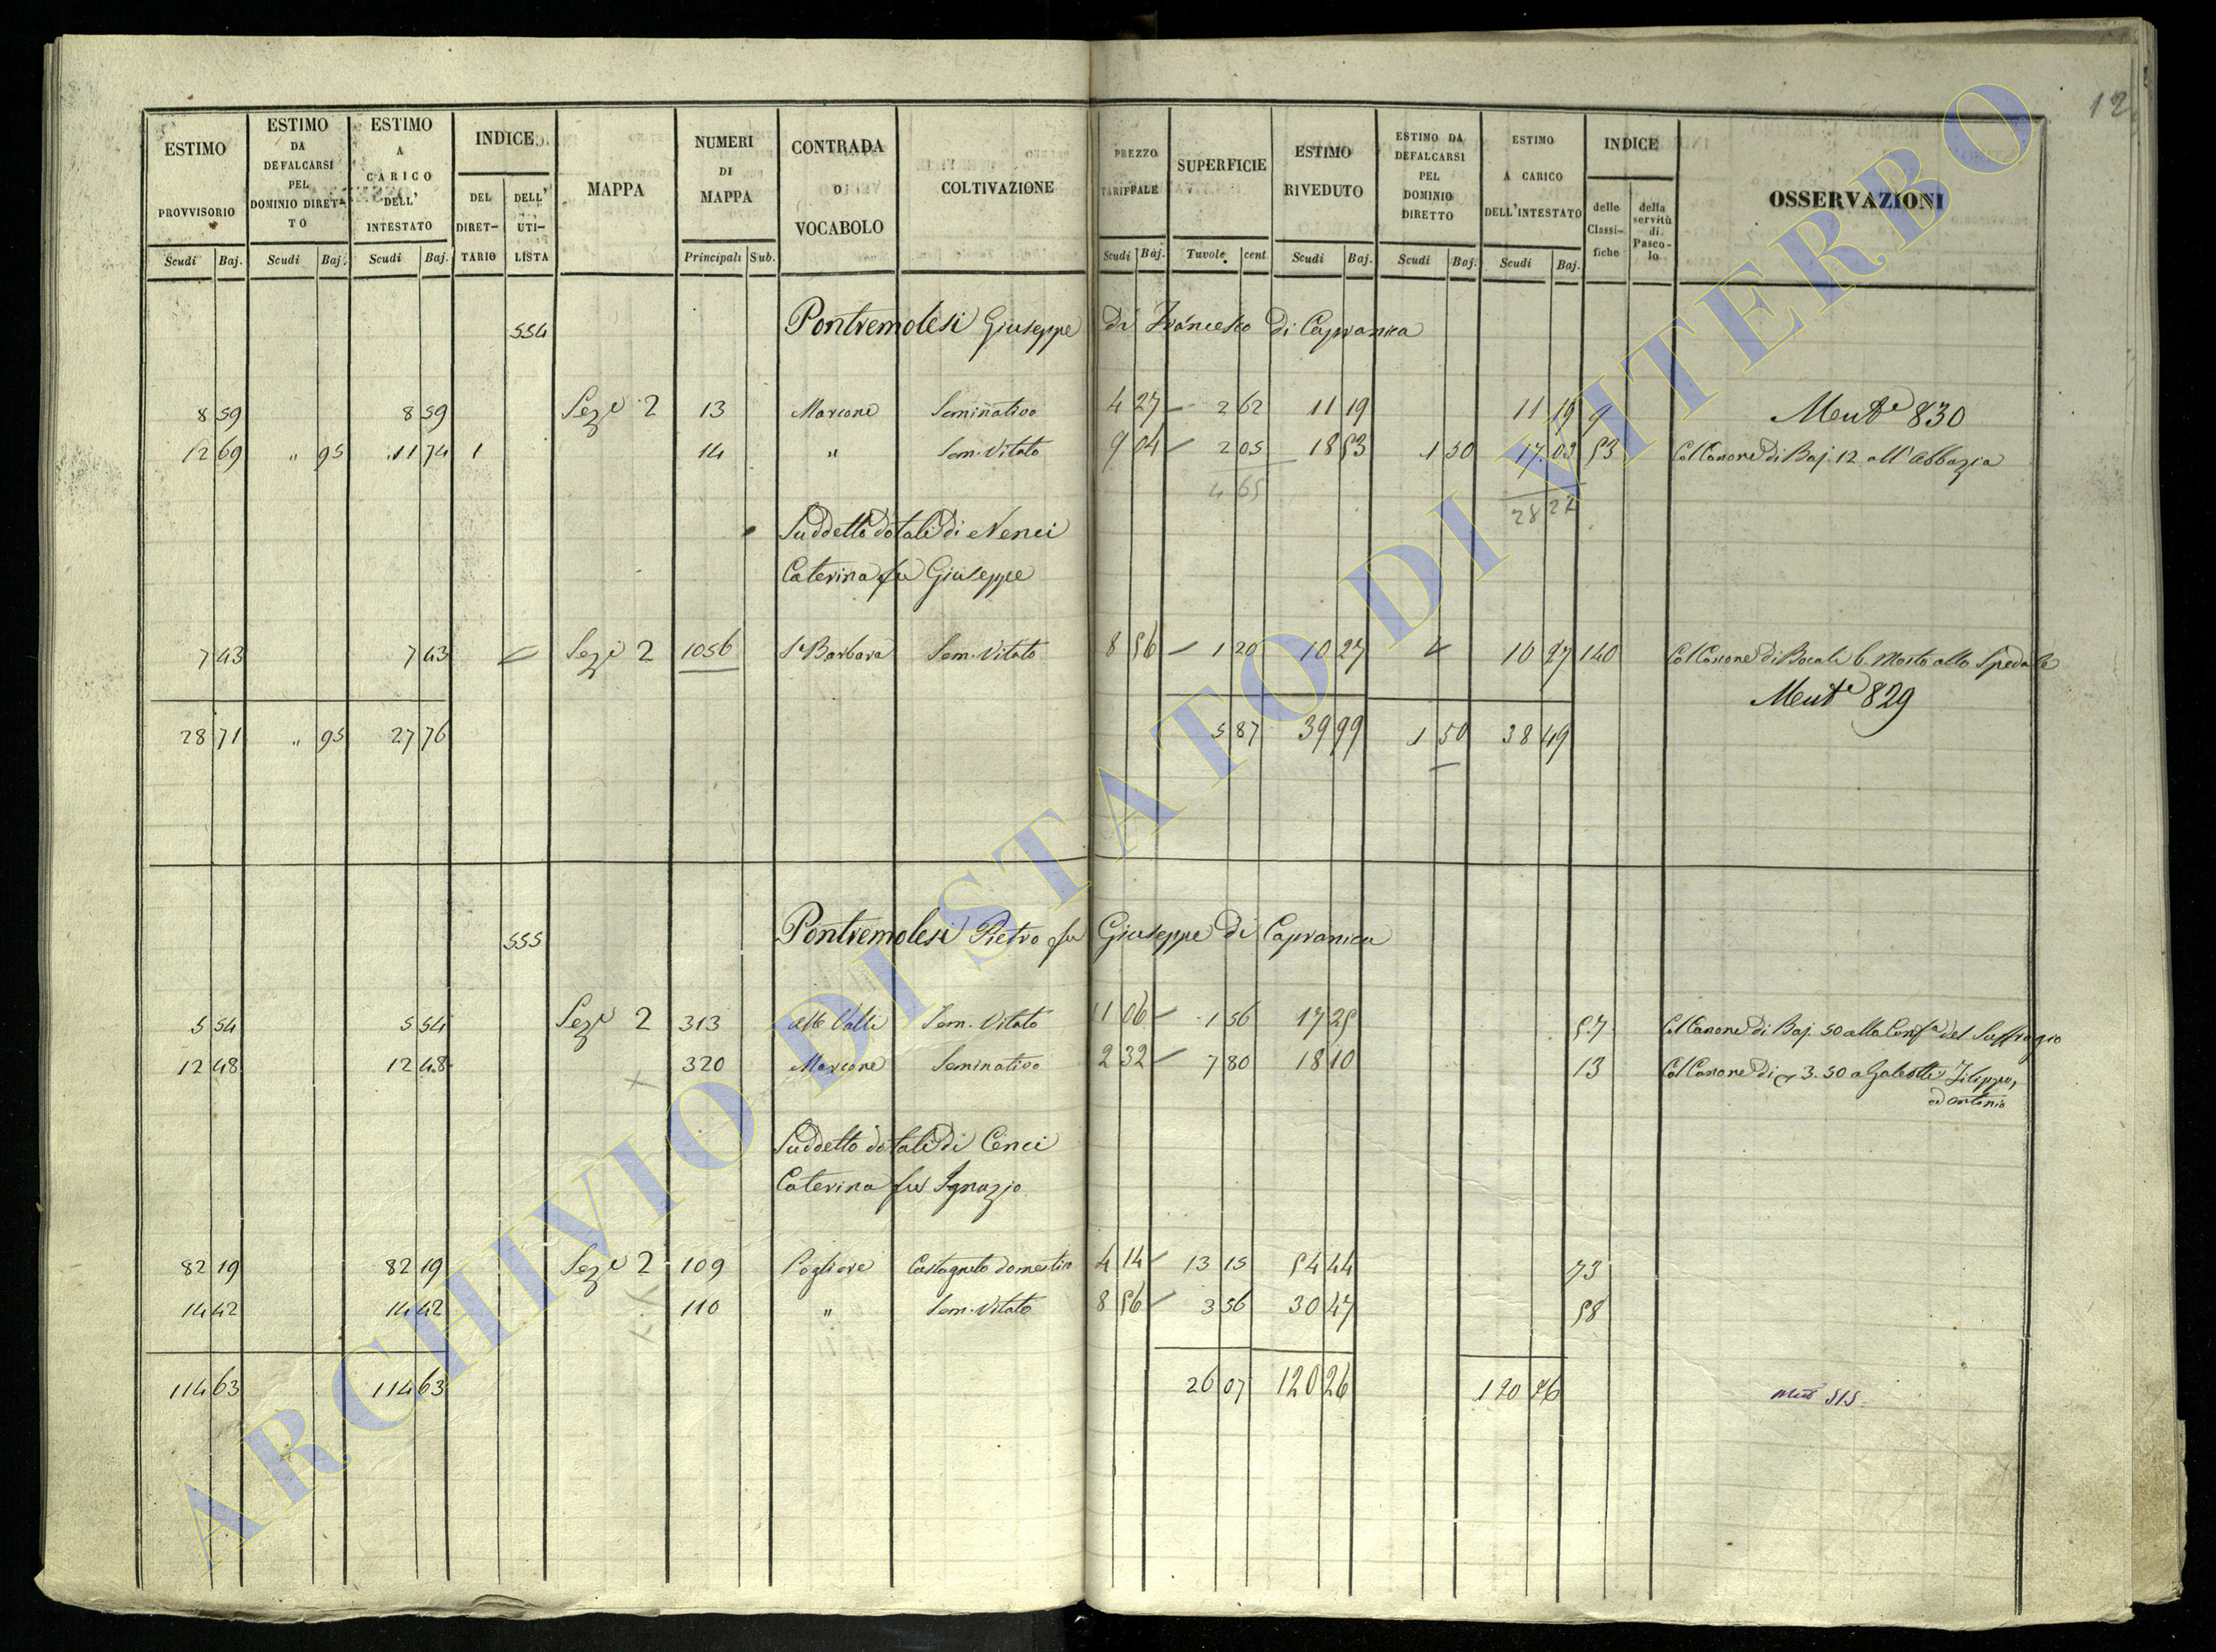 12
ESTIMO PROVVISORIO Scudi Baj.
ESTIMO DA DEFALCARSI PEL DOMINIO DIRETTO Scudi Baj.
ESTIMO A CARICO DELL' INTESTATO Scudi Baj.
INDICE DEL DIRET-TARIO DELL' UTI-LISTA
MAPPA
NUMERI DI MAPPA Principali Sub.
CONTRADA O VOCABOLO
COLTIVAZIONE
PREZZO TARIFFALE Scudi Baj.
SUPERFICIE Tavole cent.
ESTIMO RIVEDUTO Scudi Baj.
ESTIMO DA DEFALCARSI PEL DOMINIO DIRETTO Scudi Baj.
ESTIMO A CARICO DELL'INTESTATO Scudi Baj.
INDICE delle Classi-fiche della servitù di Pasco-lo
OSSERVAZIONI
554 Pontremolesi Giuseppe di Francesco di Capranica
8 59 8 59 Seze 2 13 Marcone Seminativo 4 27 2 62 11 19 11 19 9 Ment.e 830
12 69 " 95 11 74 1 14 " Sem. Vitato 9 04 2 05 18 53 1 50 17 03 53 Col Canone di Baj. 12 all'Abbazia
4 65 28 22
Suddetto dotali di Nenci
Caterina fu Giuseppe
7 43 7 43 Seze 2 1056 S.a Barbara Sem. Vitato 8 56 1 20 10 27 10 27 140 Col Canone di Bocali 6. Mosto allo Spedale
Ment.e 829
28 71 " 95 27 76 5 87 39 99 1 50 38 49
555 Pontremolesi Pietro fu Giuseppe di Capranica
5 54 5 54 Seze 2 313 Alle Valli Sem. Vitato 11 06 1 56 17 25 57 Col Canone di Baj. 50 alla Conf.a del Suffragio
12 48 12 48 320 Marcone Seminativo 2 32 7 80 18 10 13 Col Canone di 3.50 a Galeotti Filippo,
ed Antonio
Suddetto dotali di Cenci
Caterina fu Ignazio
82 19 82 19 Seze 2 109 Pogliere Castagneto domestico 4 14 13 15 54 44 73
14 42 14 42 110 " Sem. Vitato 8 56 3 56 30 47 58
114 63 114 63 26 07 120 26 120 26 Ment 515
ARCHIVIO DI STATO DI VITERBO